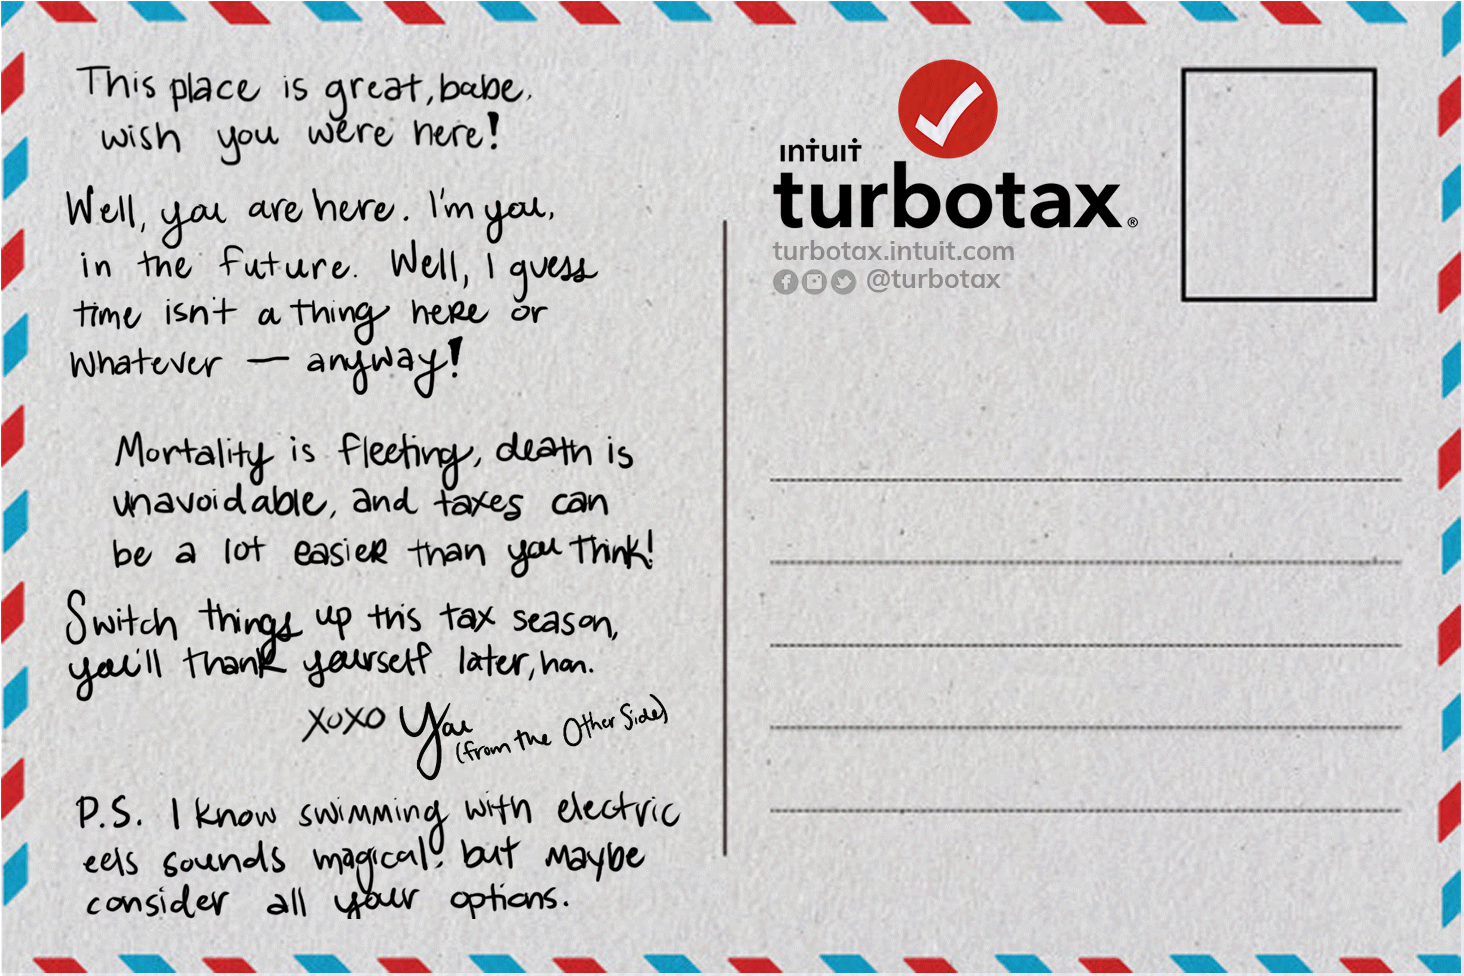 This place is great, babe.
wish you were here!
Well, you are here. I'm you,
in the future. Well, I guess
time isn't a thing here or
whatever — anyway!
Mortality is fleeting, death is
unavoidable, and taxes can
be a lot easier than you think!
Switch things up this tax season,
you'll thank yourself later, hon.
XOXO You
(from the Other Side)
P.S. I know swimming with electric
eels sounds magical, but maybe
consider all your options.
intuit
turbotax®
turbotax.intuit.com
@turbotax